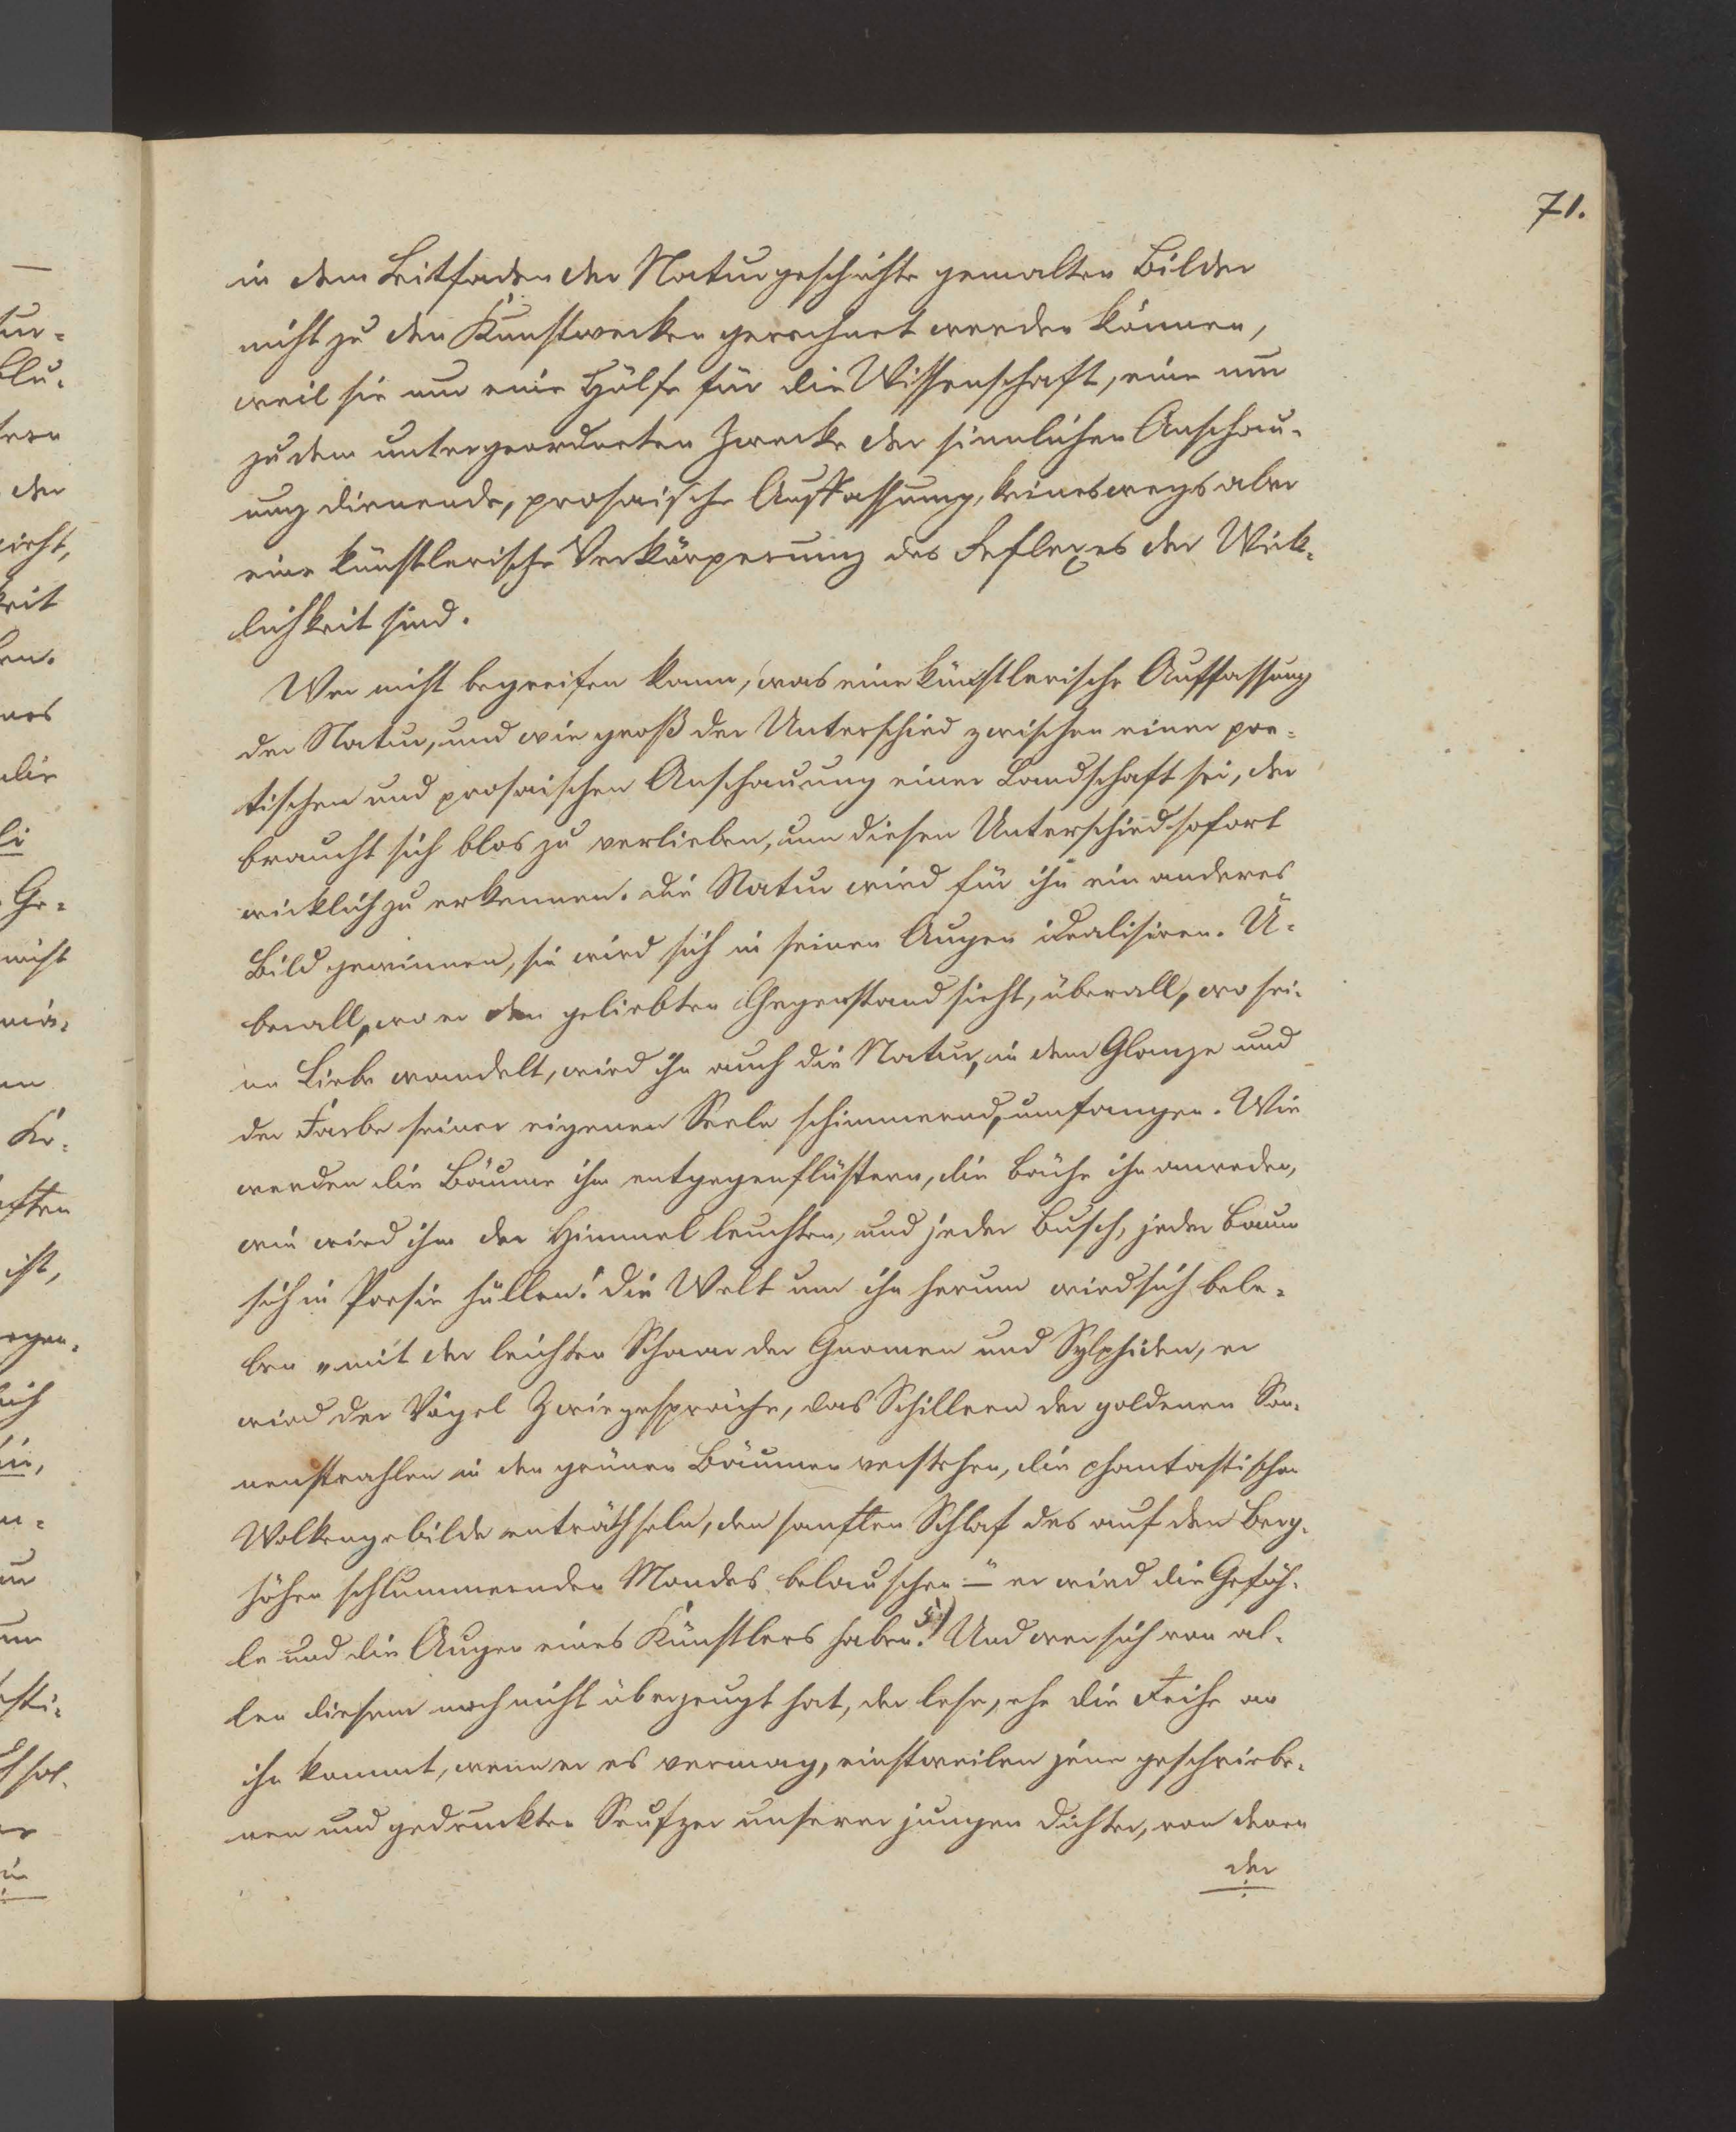 71.
in dem Leitfaden der Naturgeschichte gemalten Bilder
nicht zu den Kunstwerken gerechnet werden können,
weil sie nur eine Hülfe für die Wissenschaft, eine nur
zu dem untergeordneten Zwecke der sinnlichen Anschau-
ung dienende, prosaische Auffassung, keineswegs aber
eine künstlerische Verkörperung des Reflexes der Wirk-
lichkeit sind.
Wer nicht begreifen kann, was eine künstlerische Auffassung
der Natur, und wie groß der Unterschied zwischen einer poe-
tischen und prosaischen Anschauung einer Landschaft sei, der
braucht sich blos zu verlieben, um diesen Unterschied sofort
wirklich zu erkennen. Die Natur wird für ihn ein anderes
Bild gewinnen, sie wird sich in seinen Augen idealisiren. Ü-
berall, wo er den geliebten Gegenstand sieht, überall, wo sei-
ne Liebe wandelt, wird ihn auch die Natur, in dem Glanze und
der Farbe seiner eigenen Seele schimmernd, umfangen. Wie
werden die Bäume ihm entgegenflüstern, die Bäche ihn anreden,
wie wird ihm der Himmel leuchten, und jeder Busch, jeder Baum
sich in Poesie hüllen! Die Welt um ihn herum wird sich bele-
ben „mit der leichten Schaar der Gnomen und Sylphiden, er
wird der Vögel Zwiegespräche, das Schillern der goldenen Son-
nenstrahlen in den grünen Bäumen verstehen, die phantastischen
Wolkengebilde enträthseln, den sanften Schlaf des auf den Berg-
höhen schlummernden Mondes belauschen“ – er wird die Gefüh-
le und die Augen eines Künstlers haben. 5) Und wer sich von al-
len diesem noch nicht überzeugt hat, der lese, ehe die Reihe an
ihn kommt, wenn er es vermag, einstweilen jene geschriebe-
nen und gedruckten Seufzer unserer jungen Dichter, von denen
der